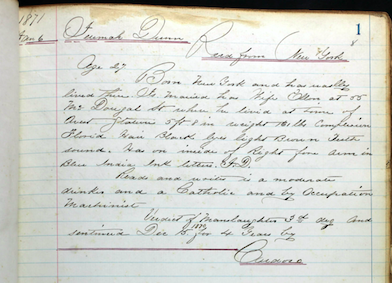 1871
1
Jan 6 Dunn
Recd from (New York
Age 27
Born New York and has
lived there Is Married has Wife Ellen at 55
Mc Dougal St where he lived at time of
Arrest Stature 5 ft 8 in weight 151 lbs Complexion
Florid Hair Black Eyes light Brown Teeth
sound. Has on inside of Right fore arm in
Blue India Ink letters J.D.
Reads and writes is a moderate
drinker and a Catholic and by Occupation
Machinist
Verdict of Manslaughter 3rd deg and
sentenced Dec 15 1870 for 4 Years by